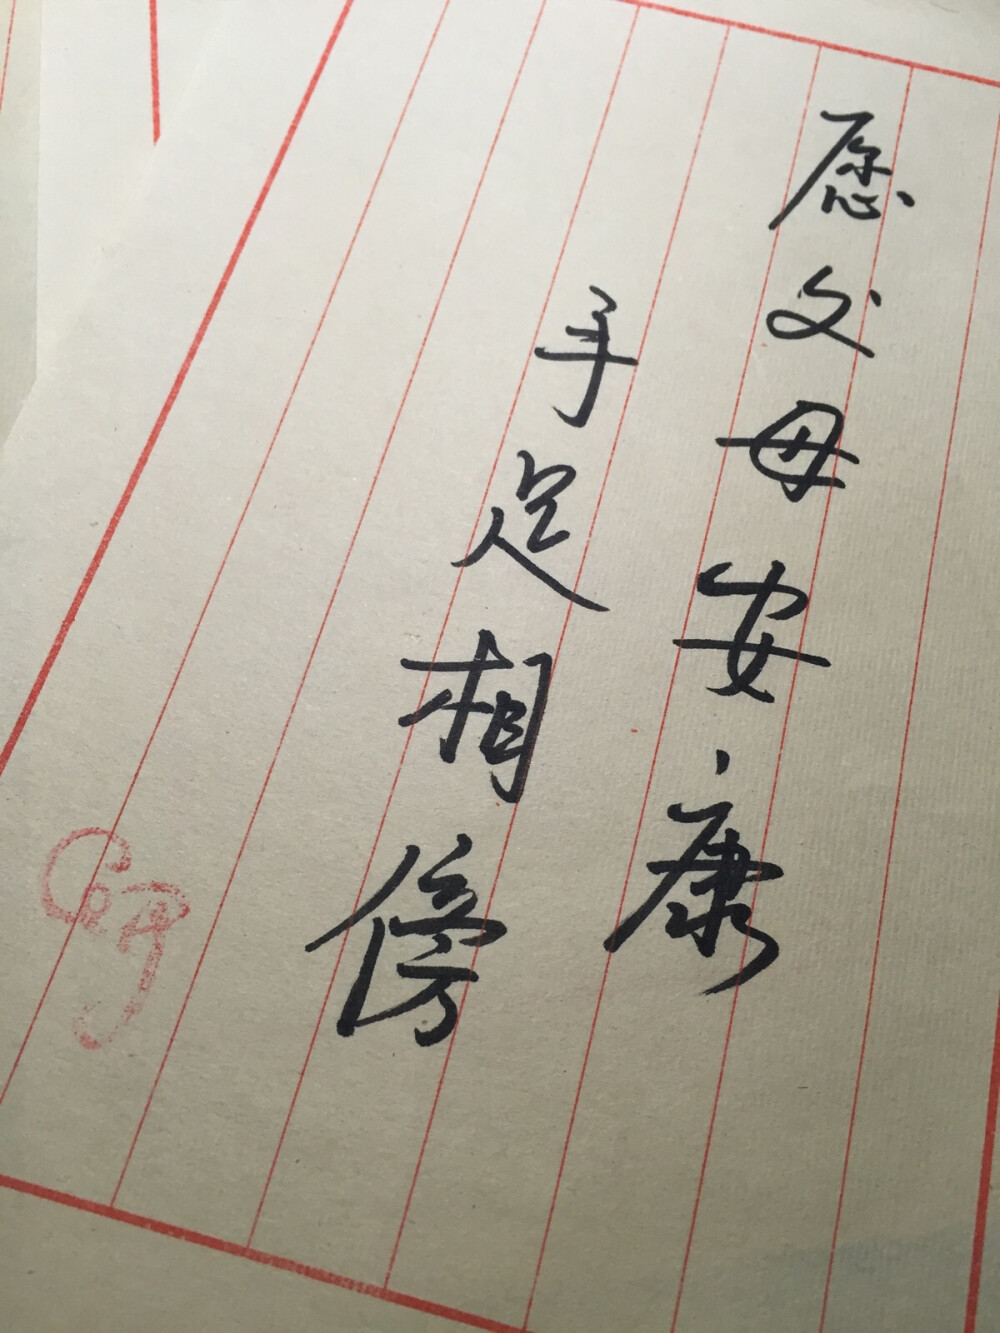 愿父母安康
手足相傍